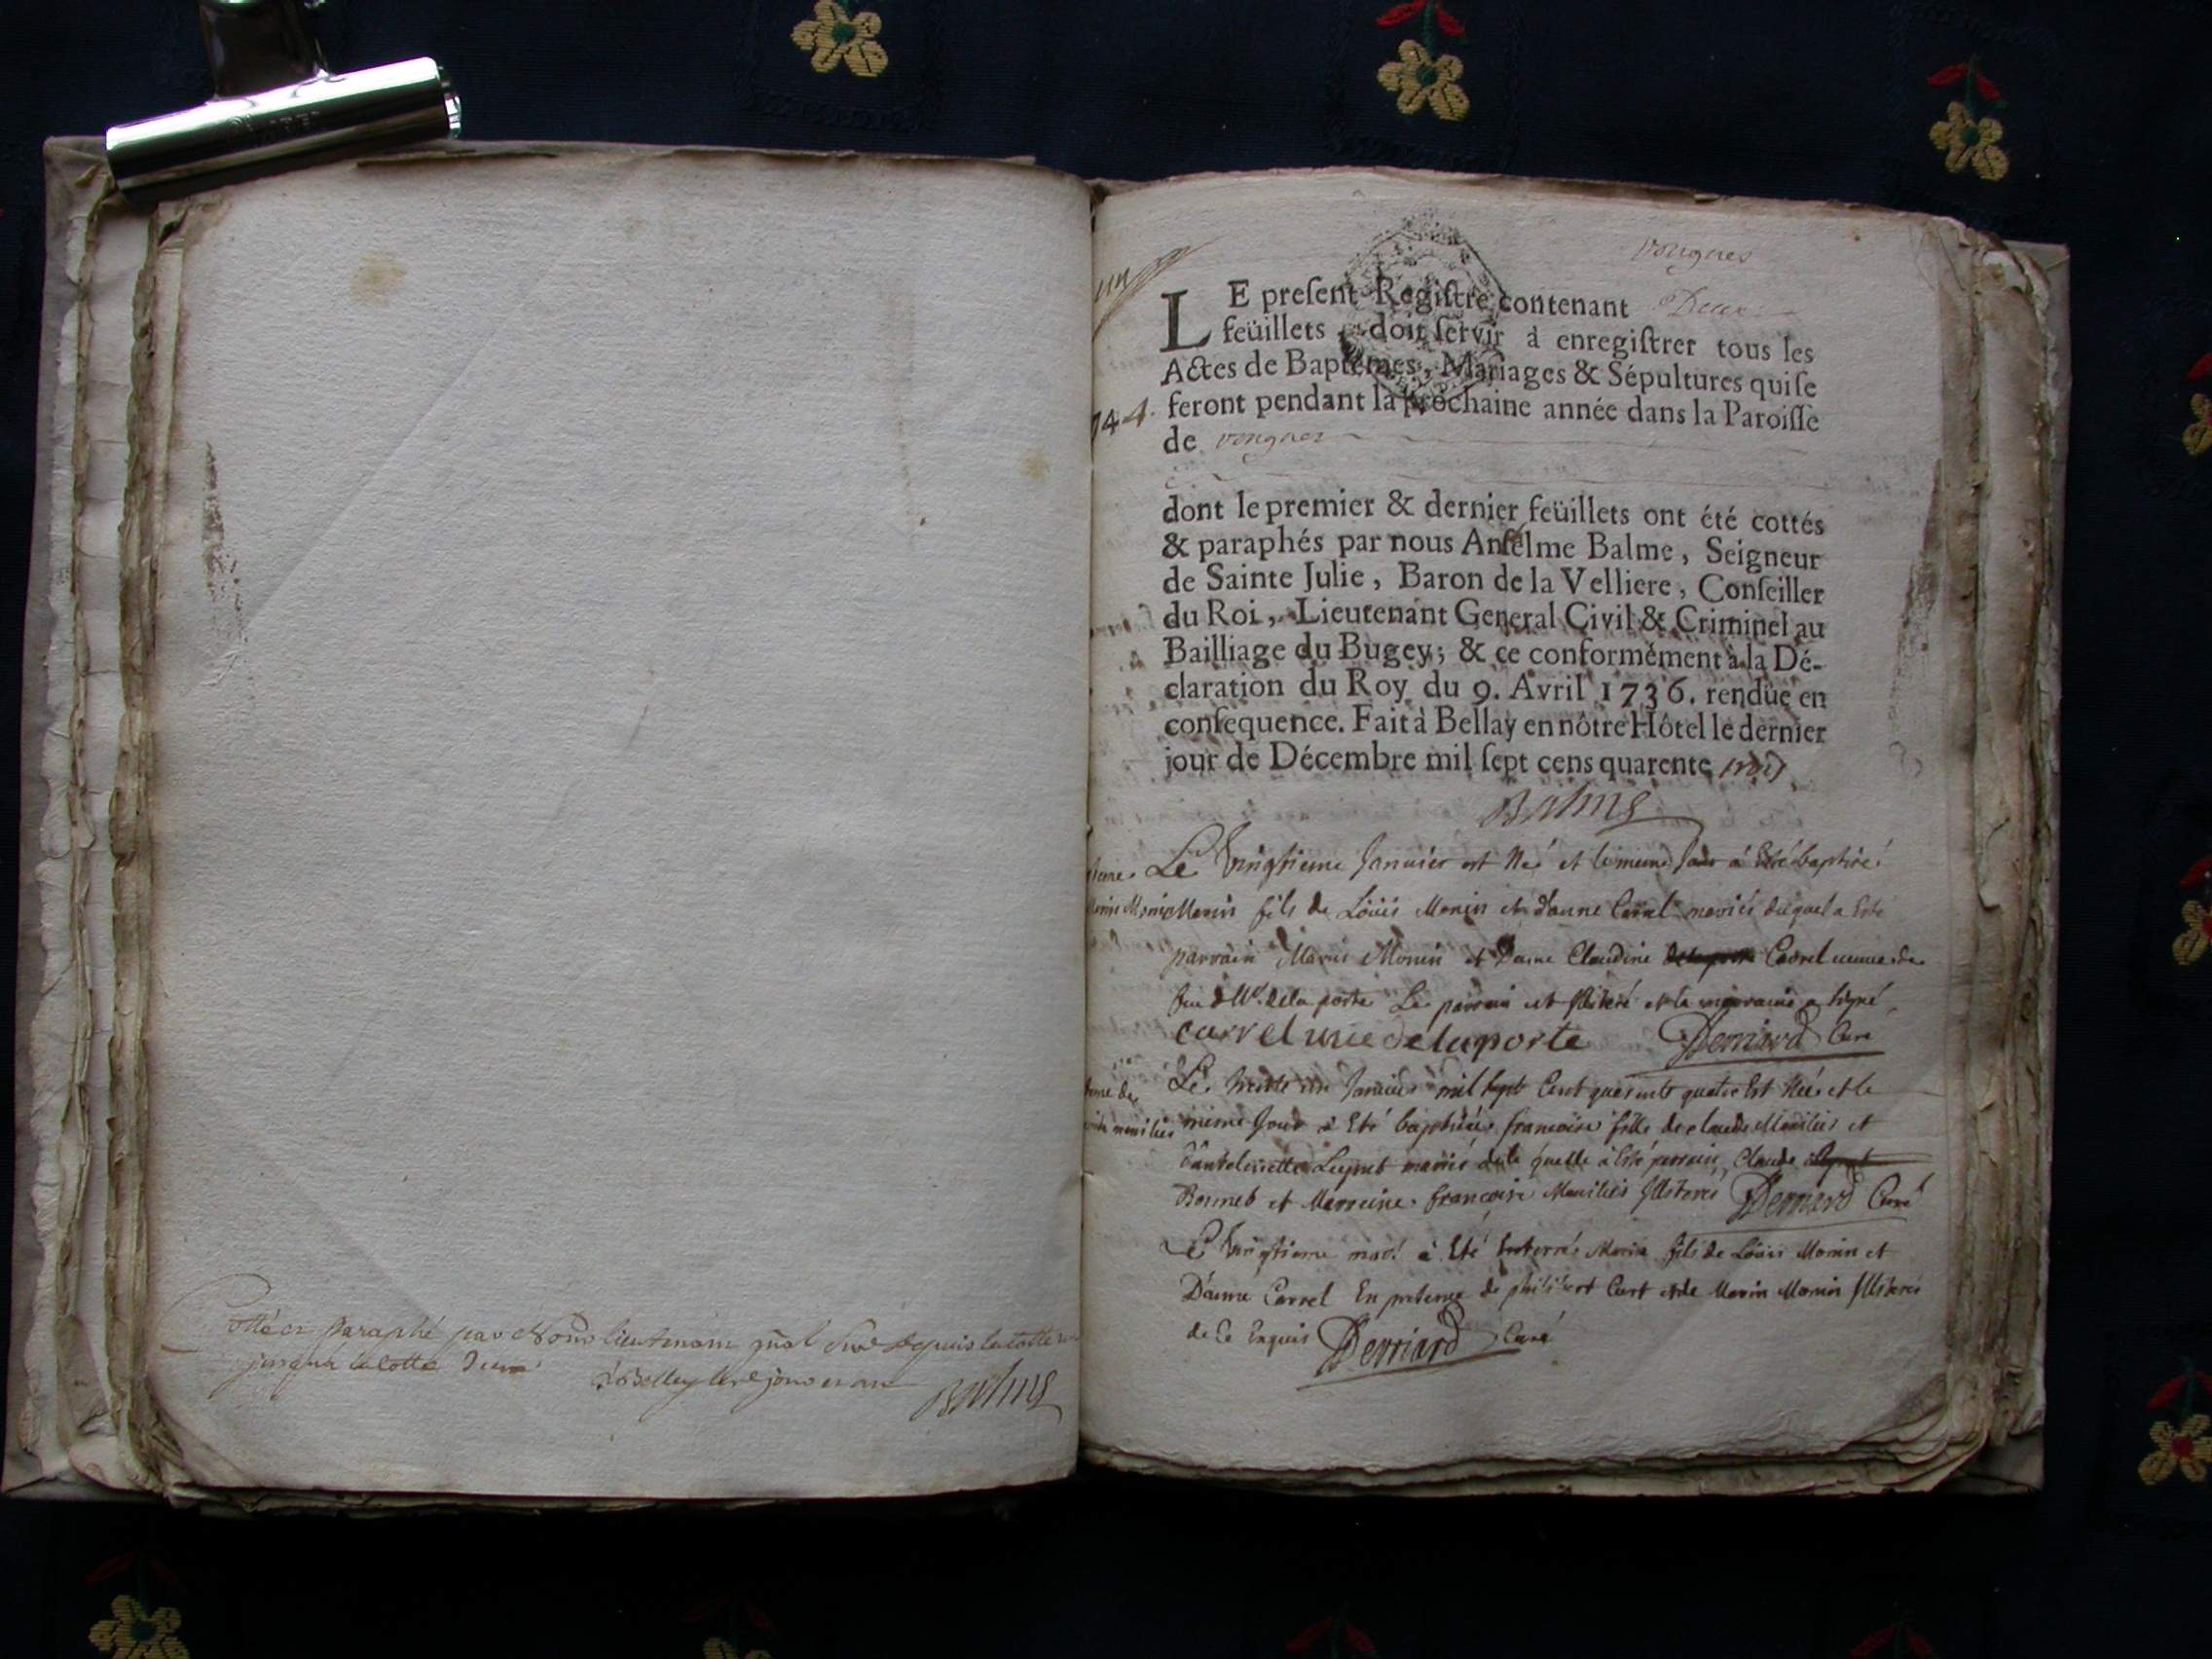 Cotté et Paraphé par Nous lieutenant gñal depuis la cotte un
jusqu'à la cotte Deux à Belley led jour et an
Balme
un
vougnes
LE preſent Regiſtre contenant Deux
feüillets, doit ſervir à enregiſtrer tous les
Actes de Baptêmes, Mariages & Sépultures qui ſe
744. feront pendant la prochaine année dans la Paroiſſe
de vougnes
dont le premier & dernier feüillets ont été cottés
& paraphés par nous Anſelme Balme, Seigneur
de Sainte Julie, Baron de la Velliere, Conſeiller
du Roi, Lieutenant General Civil & Criminel au
Bailliage du Bugey; & ce conformément à la Dé-
claration du Roy du 9. Avril 1736. rendüe en
conſequence. Fait à Bellay en nôtre Hôtel le dernier
jour de Décembre mil ſept cens quarente trois
Balme
Le vingtieme Janvier est Né et le meme Jour à Eté baptisé
Marin fils de Loüis Monin et d'anne Carrel mariés duquel a Esté
parrain Marin Monin et Dame Claudine Carrel veuve de
feu de la porte Le parrain est Illiteré et la marraine a signé
carrel uue delaporte Derriard Curé
Le trente un Janvier mil sept Cent quarente quatre Est Née et le
meme Jour à Eté baptisée francoise fille de claude Monilier et
mariés de la quelle à Esté parrain Claude
Bonnet et Marreine francoise Monilier Illiterés Derriard Curé
Le Vingtieme à Eté Enterré Marin fils de Loüis Monin et
D'anne Carrel En presence de philibert Curt et de Marin Monin Illiterés
de Ce Enquis Derriard Curé